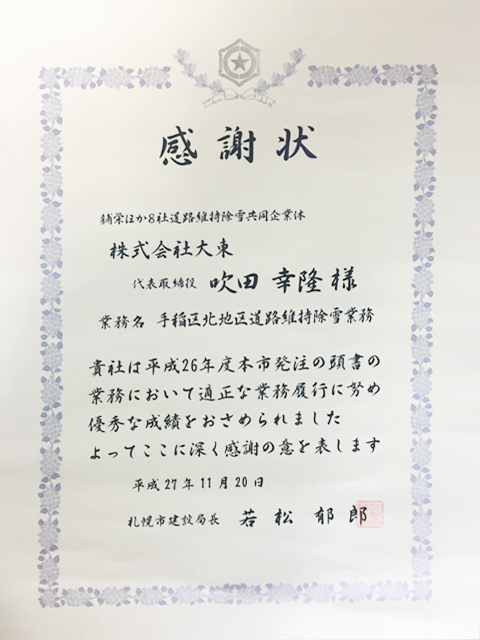 感謝状
舗栄ほか8社道路維持除雪共同企業体
株式会社大東
代表取締役 吹田幸隆様
業務名 手稲区北地区道路維持除雪業務
貴社は平成26年度本市発注の頭書の
業務において適正な業務履行に努め
優秀な成績をおさめられました
よってここに深く感謝の意を表します
平成27年11月20日
札幌市建設局長 若松郁郎